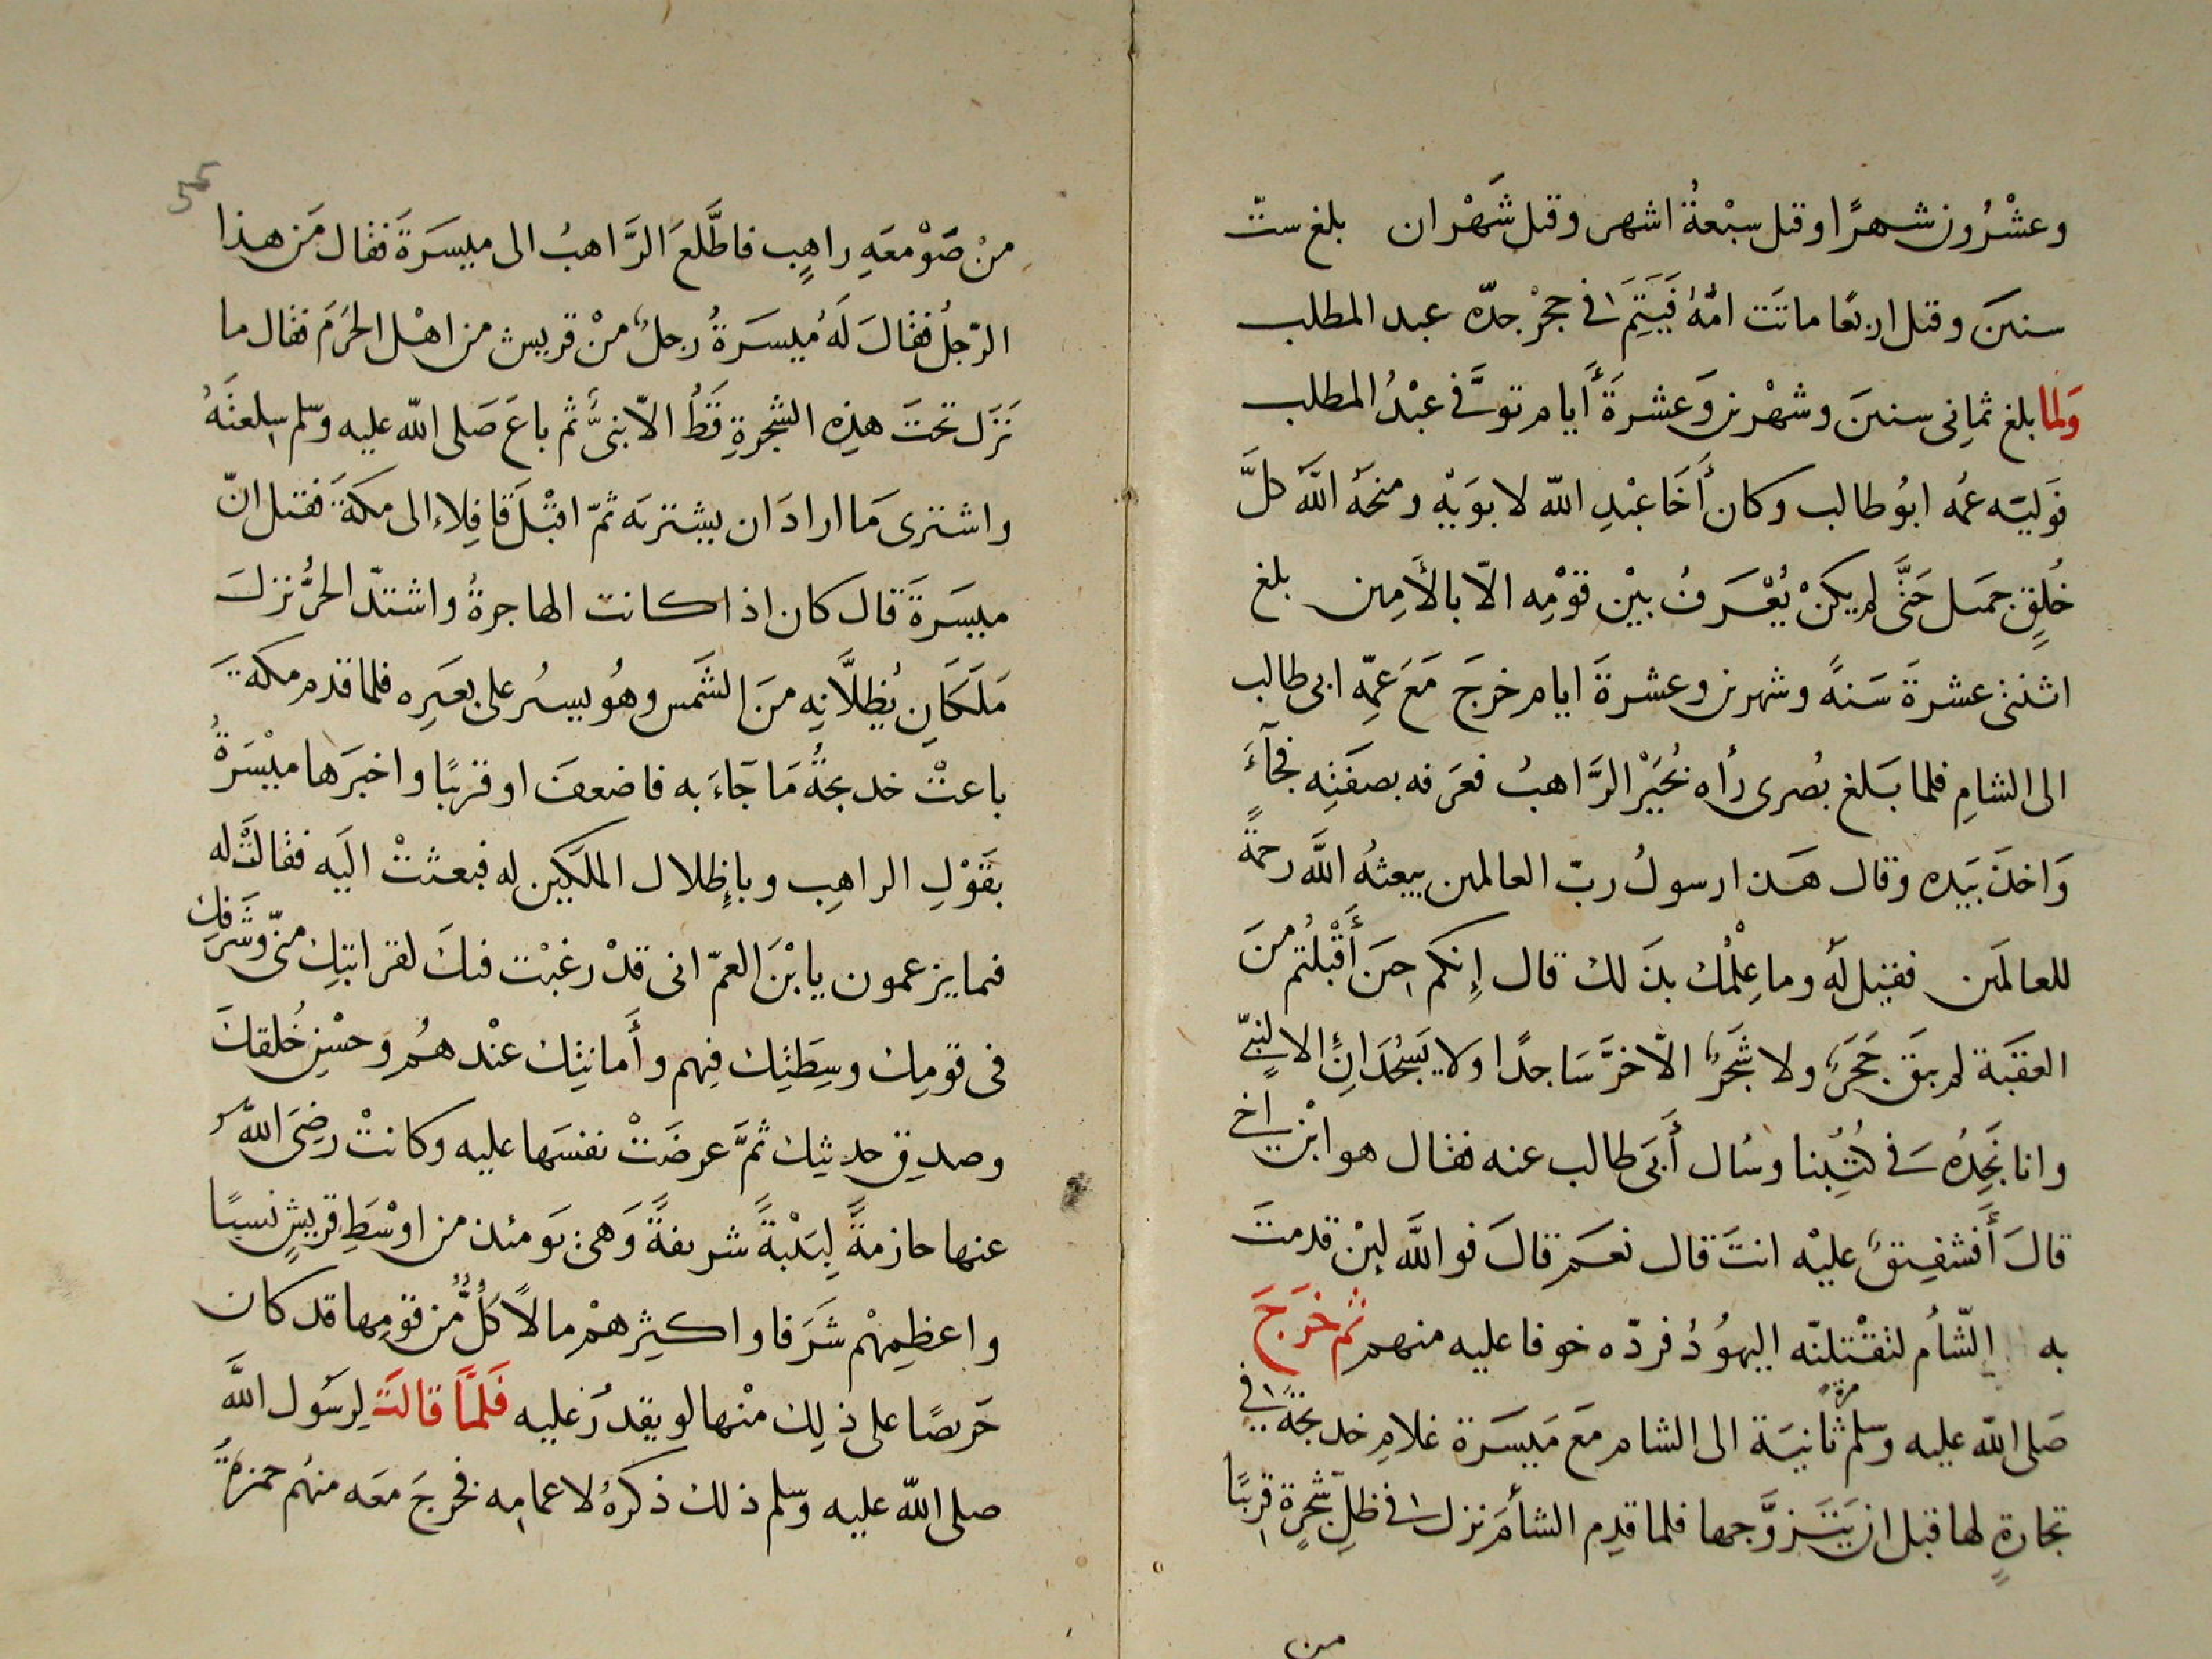 وعشْرُون شهرًا وقيل سبْعةُ اشهر وقيل شَهْران بلغ ستّ
سنين وقيل اربعًا ماتَت امّهُ فَيَتِمَ في حِجْر جدّه عبد المطلب
وَلما بلغ ثمانِى سنينَ وشهْرين وَعشرةَ أَيام توفَّى عبْدُ المطلب
فَوَليَه عمُّه ابوُ طالب وكان أَخَا عبْدِ الله لابوَيْهِ ومنحَهُ اللَّهُ كلَّ
خُلِقٍ جميل حَتَّى لم يكنْ يُعْرَفُ بيْن قوْمِه الاّ بالأَمِين بلغ
اثنتى عشرةَ سَنةً وشهرين وعشرةَ ايام خرجَ مَعَ عمِّهِ ابى طالب
الى الشامِ فلما بَلغ بُصرى رأه بُحَيْر الرَّاهبُ فعَرَفه بصفَتِه فجآءَ
وَاخذَ بيَده وقال هَذا رسولُ ربّ العالمين يبعثهُ اللَّه رحمةً
للعالمَين فقيل لَهُ وما عِلْمُك بذَلك قال إِنكم حِينَ أَقْبلتم منَ
العقبَة لم يبقَ حَجَرٌ ولا شَجَرٌ الاّ خرَّ سَاجدًا ولا يَسْجُدَانِ الا لنبىّ
وانا نَجِدُهُ فى كُتُبِنا وسُال أَبَى طالب عنه فقال هو ابْن اخى
قالَ أَفشفِيقٌ عليْه انتَ قال نعَم قالَ فواللَّه ليِن قدمتَ
به الشّأم لتقْتلنّه اليهوُدُ فردّه خوفا عليه منهم ثم خَرَجَ
صَلى الله عليه وسلم مرة ثانيَة الى الشام مَعَ مَيسَرَة غلامِ خديجةَ في
تجارةٍ لها قبل ان يَتَزوَّجها فلما قدِم الشأمَ نزل في ظلِ شجرةٍ قرِيبًا
من
من صَوْمعَهِ راهِبٍ فاطَّلعَ الرَّاهبُ الى ميسَرَةَ فقال مَن هذا
الرّجلُ فقالَ لَهُ مُيسَرَةُ رجلٌ منْ قريش من اهْل الحَرَمَ فقال ما
نَزَل تحتَ هذِه الشجرةِ قَطُ الاّ نبىٌّ ثم باعَ صَلى الله عليه وسلم سِلعتَهُ
واشترى مَا ارادَ ان يشتريَه ثمّ اقبْلَ قافِلاء الى مكةَ فقيل انّ
ميسَرَةَ قالَ كان اذا كانت الهاجرةُ واشتدّ الحَرُّ نزلَ
مَلَكَانِ يُظلاَّنِه منَ الشمس وهُو يسيرُ على بعَيرِه فلما قدم مكةَ
باعتْ خديجةُ مَا جَاءَ به فاضعفَ او قريبًا واخبَرَها ميْسَرَةُ
بقَوْلِ الراهبِ وبإِظلال الملَكين له فبعثتْ اليَه فقالتْ له
فيما يزعمون يا بْنَ العمّ انى قدْ رغبْت فيكَ لقرابتِك منّى وشَرَفِك
فى قومِك وسِطَتِك فِيهم وأَمانتِك عنْدهُم وَحسْنِ خُلقكَ
وصدقِ حديثِك ثمَّ عرضَتْ نفسَها عليه وكانتْ رضِىَ الله
عنها حازمةً لبَيْبةً شريفةً وَهىَ يَومئذ من اوْسَطِ قريشٍ نسبًا
واعظمِهْم شَرَفا واكثِرهمْ مالاً كُلٌّ من قوَمِها قد كان
حَريصًا على ذلِك منْها لو يقدرُ عليه فَلمَّا قالَتَ لِرسَول اللَّه
صلى الله عليه وسلم ذلك ذكرهُ لاعمامِه فخرجَ معَه منهُم حمزةُ